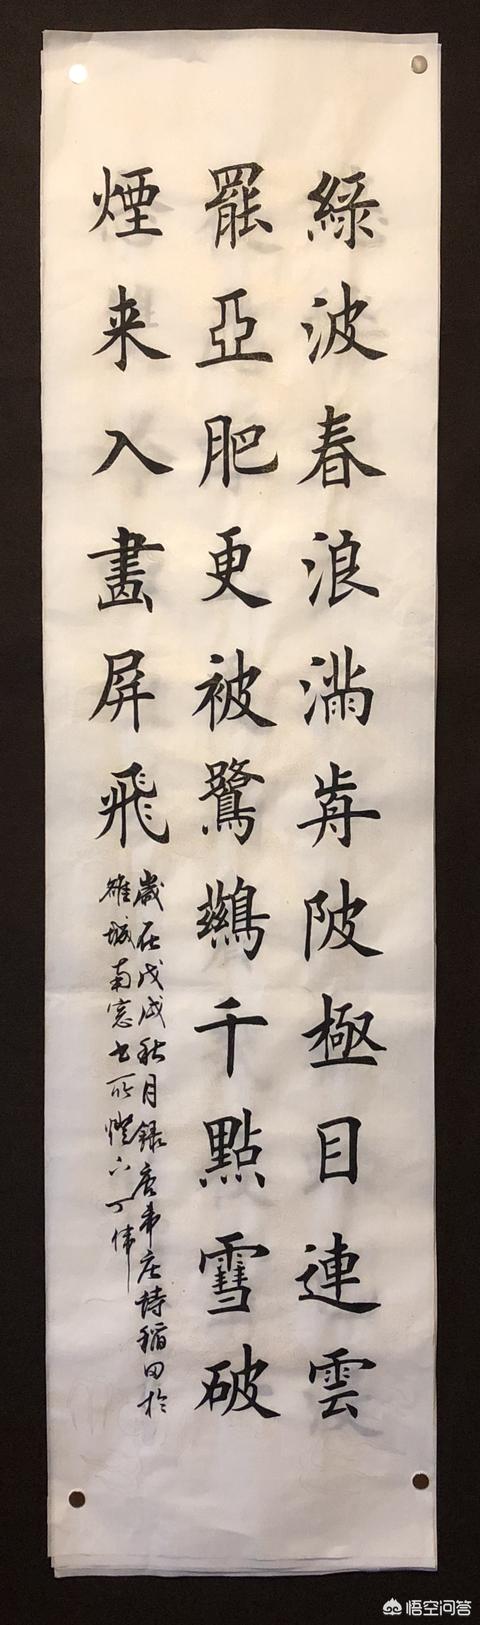 綠波春浪滿歬陂極目連雲
罷亞肥更被鷺鷀千點雪破
煙来入畫屏飛
歲在戊戌秋月録唐韋莊詩稻田於
雒城南窓
丁偉
悟空问答